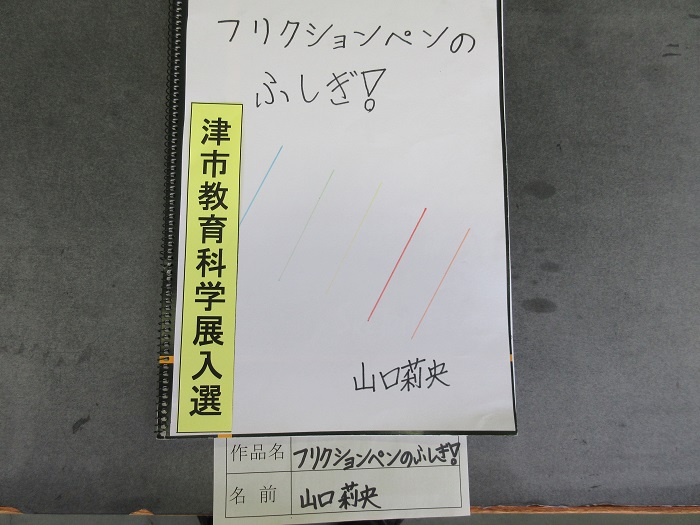 フリクションペンの
ふしぎ!
津市教育科学展入選
山口莉央
作品名 フリクションペンのふしぎ!
名前 山口莉央